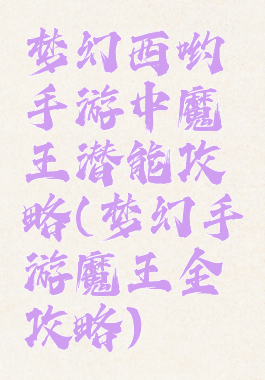 梦幻西哟
手游中魔
王潜能攻
略(梦幻手
游魔王全
攻略)